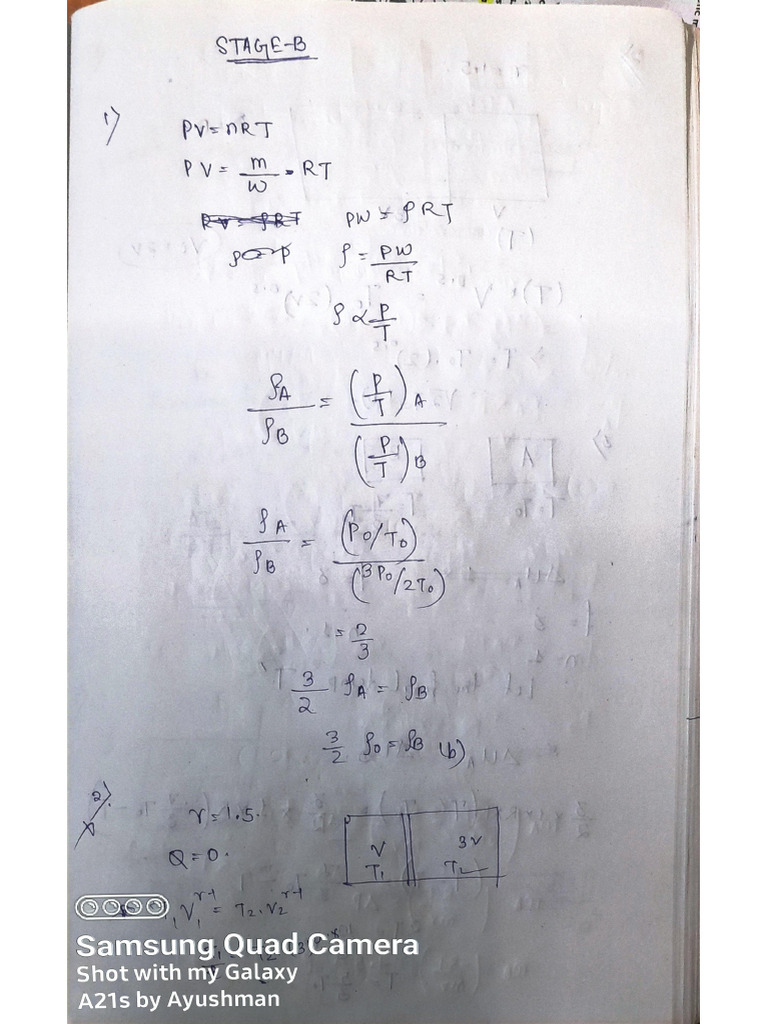 STAGE-B
1) PV = nRT
PV = m/W · RT
PV = ρRT PW = ρRT
ρ ∝ P ρ = PW/RT
ρ ∝ P/T
ρA/ρB = (P/T)A / (P/T)B
ρA/ρB = (P0/T0) / (3P0/2T0)
= 2/3
3/2 ρA = ρB
3/2 ρ0 = ρB (b)
2) γ = 1.5.
Q = 0.
V 3V
T1 T2
V1^γ-1 = T2.V2^γ-1
Samsung Quad Camera
Shot with my Galaxy
A21s by Ayushman